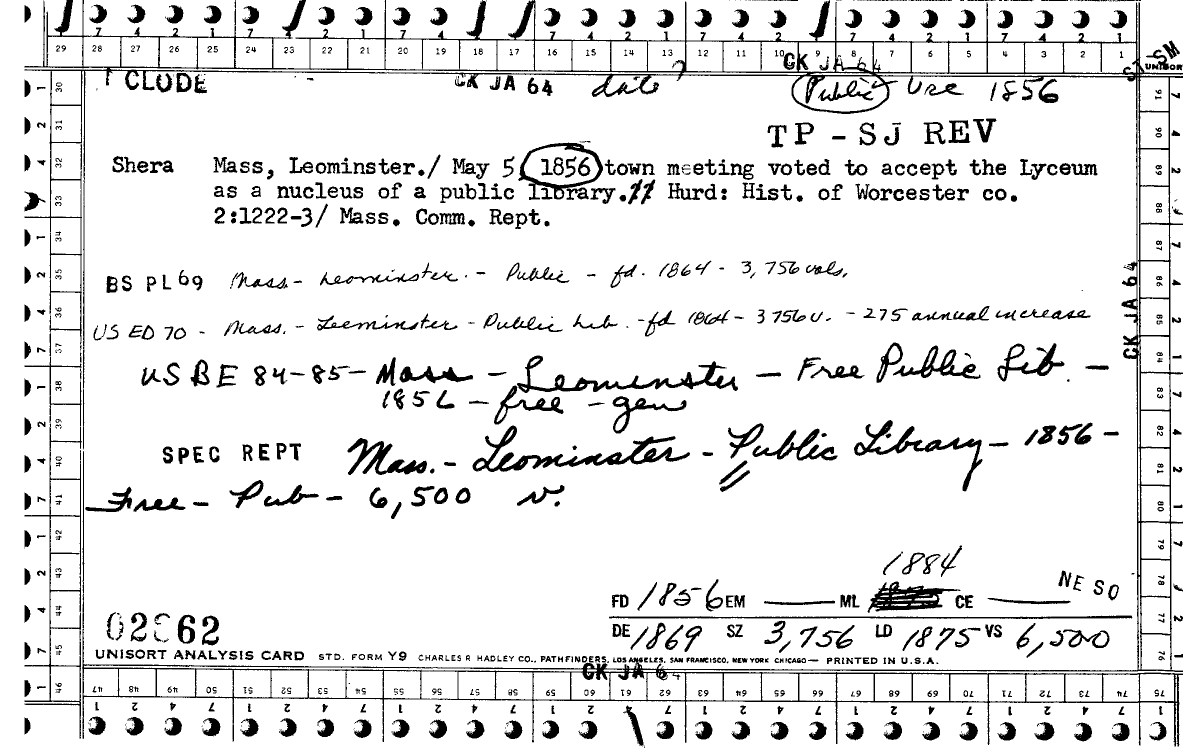 7 4 2 1 7 4 2 1 7 4 2 1 7 4 2 1 7 4 2 1 7 4 2 1 7 4 2 1
29 28 27 26 25 24 23 22 21 20 19 18 17 16 15 14 13 12 11 10 9 8 7 6 5 4 3 2 1
CK JA 64
UNISORT
CLUDE CK JA 64 date? Public Use 1856
TP - SJ REV
Shera Mass, Leominster./ May 5, 1856 town meeting voted to accept the Lyceum
as a nucleus of a public library.// Hurd: Hist. of Worcester co.
2:1222-3/ Mass. Comm. Rept.
BS PL69 Mass - Leominster. - Public - fd. 1864 - 3,756 vols.
US ED 70 - Mass. - Leominster - Public Lib. - fd 1864 - 3756 v. - 275 annual increase
CK JA 64
US BE 84-85 - Mass - Leominster - Free Public Lib. -
1856 - free - gen
SPEC REPT Mass. - Leominster - Public Library - 1856 -
Free - Pub - 6,500 v.
1884
NE SO
FD 1856 EM — ML 1875 CE —
02862
DE 1869 SZ 3,756 LD 1875 VS 6,500
UNISORT ANALYSIS CARD STD. FORM Y9 CHARLES R HADLEY CO., PATHFINDERS, LOS ANGELES, SAN FRANCISCO, NEW YORK CHICAGO — PRINTED IN U.S.A.
CK JA 64
46 47 48 49 50 51 52 53 54 55 56 57 58 59 60 61 62 63 64 65 66 67 68 69 70 71 72 73 74 75
1 2 4 7 1 2 4 7 1 2 4 7 1 2 4 7 1 2 4 7 1 2 4 7 1 2 4 7